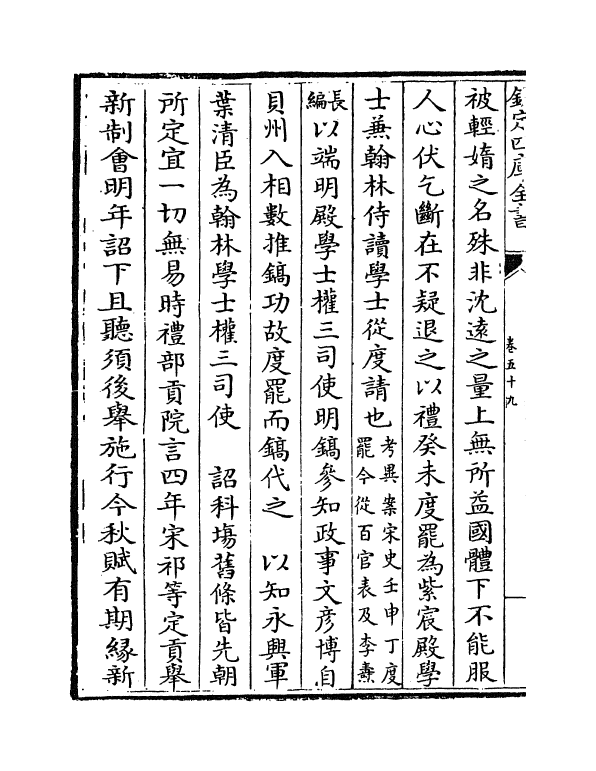 欽定四庫全書
卷五十九
被輕媠之名殊非沈遠之量上無所益國體下不能服
人心伏乞斷在不疑退之以禮癸未度罷為紫宸殿學
士兼翰林侍讀學士從度請也考異案宋史壬申丁度
罷今從百官表及李燾
長編以端明殿學士權三司使明鎬參知政事文彥博自
貝州入相數推鎬功故度罷而鎬代之　以知永興軍
葉清臣為翰林學士權三司使　詔科場舊條皆先朝
所定宜一切無易時禮部貢院言四年宋祁等定貢舉
新制會明年詔下且聽須後舉施行今秋賦有期緣新